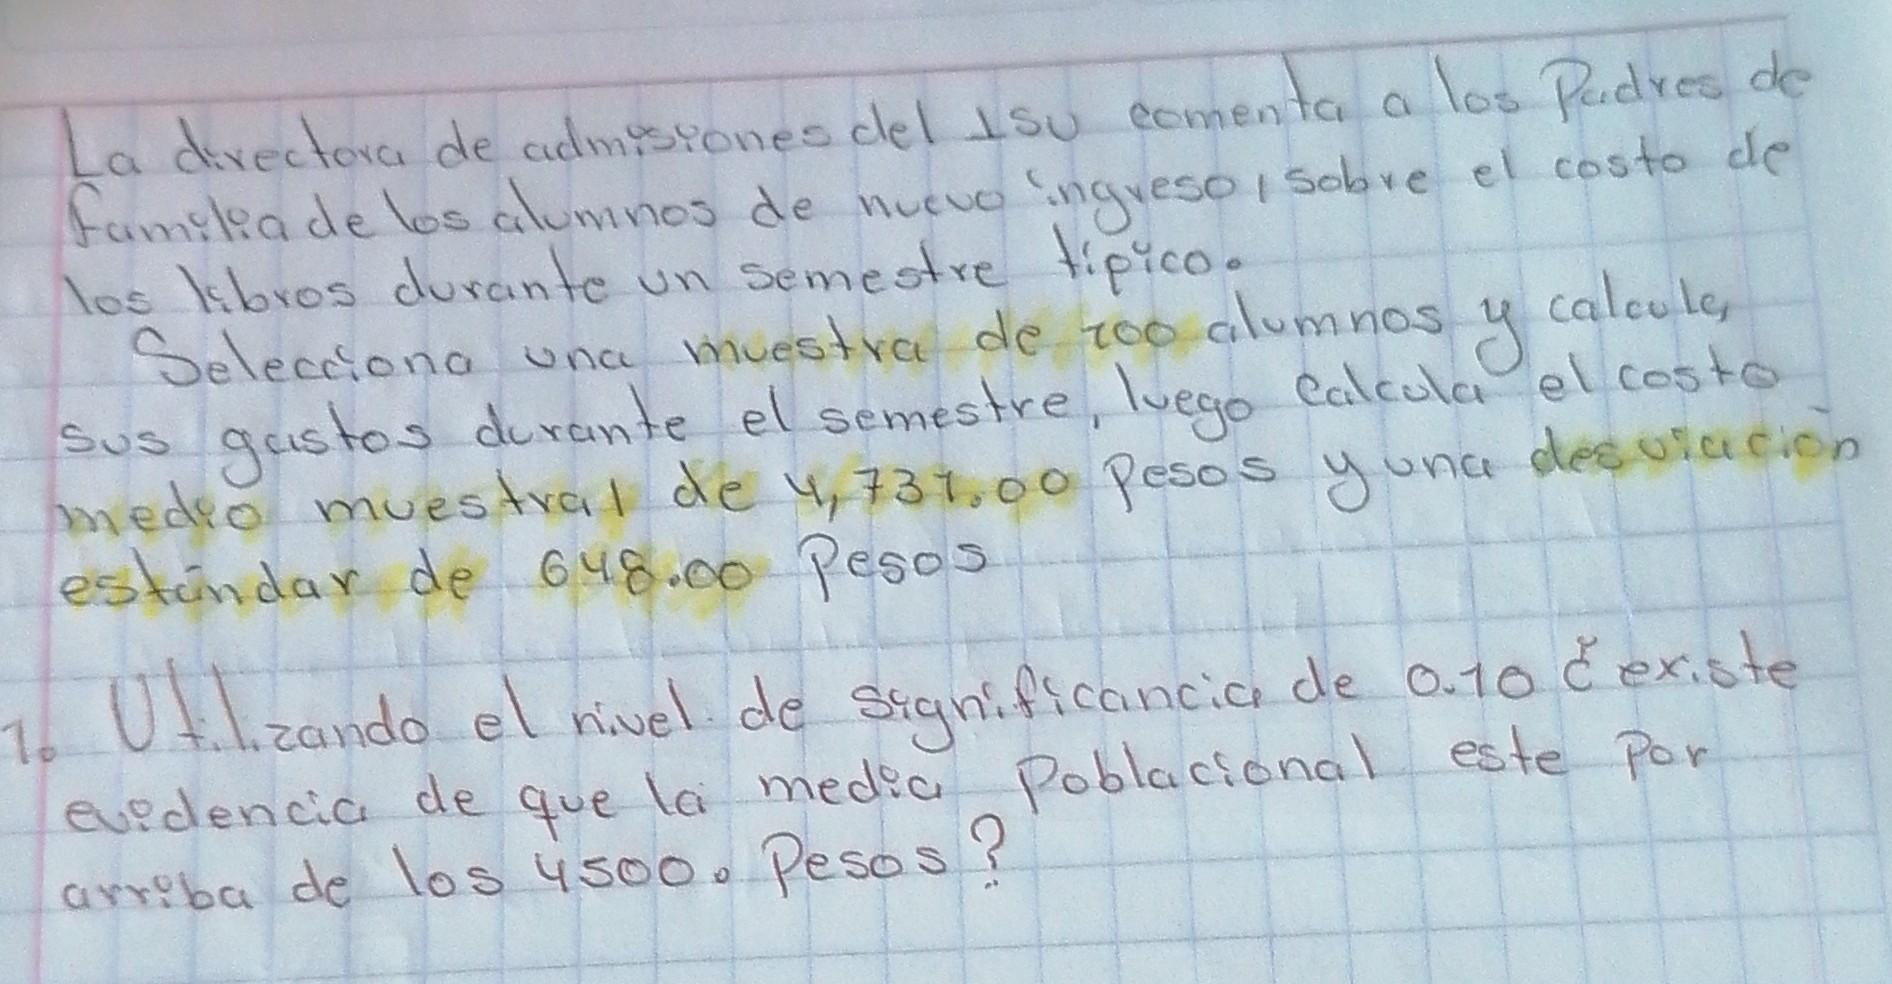 La directora de admisiones del ISU comenta a los Padres de
familia de los alumnos de nuevo ingreso, sobre el costo de
los libros durante un semestre típico.
Selecciona una muestra de 100 alumnos y calcula,
sus gastos durante el semestre, luego calcula el costo
medio muestral de 4,731.00 Pesos y una desviación
estándar de 648.00 Pesos
1. Utilizando el nivel de significancia de 0.10 ¿existe
evidencia de que la media Poblacional este Por
arriba de los 4500. Pesos?